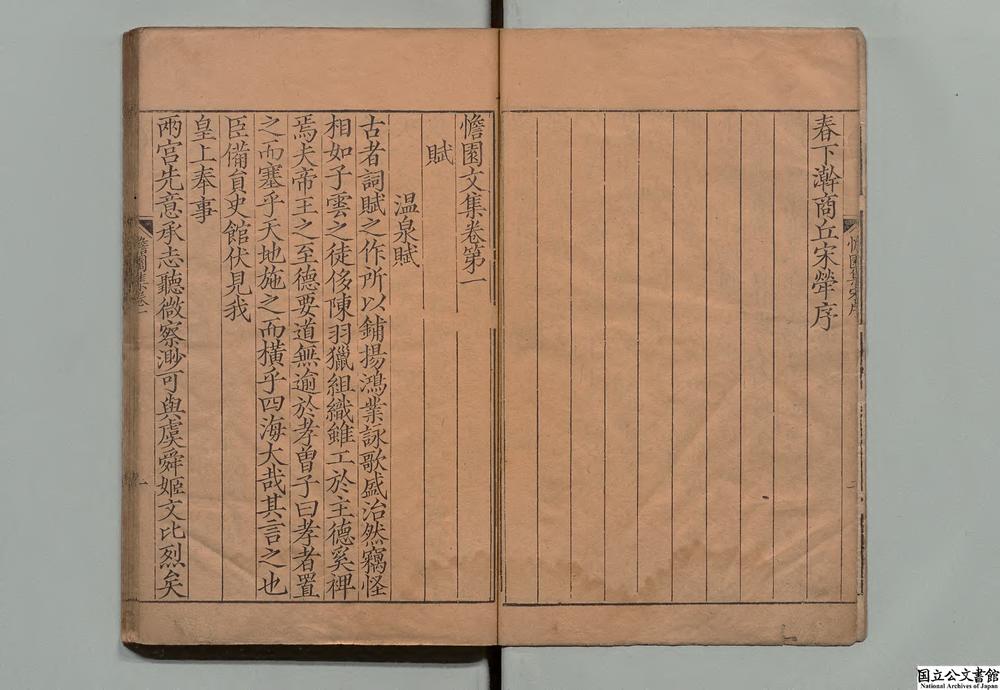 春下澣商丘宋犖序
憺園集序
憺園文集卷第一
賦
温泉賦
古者詞賦之作所以鋪揚鴻業詠歌盛治然竊怪
相如子雲之徒侈陳羽獵組織雖工於主德奚裨
焉夫帝王之至德要道無逾於孝曾子曰孝者置
之而塞乎天地施之而橫乎四海大哉其言之也
臣備員史館伏見我
皇上奉事
兩宮先意承志聽微察渺可與虞舜姬文比烈矣
憺園集卷一
一
国立公文書館
National Archives of Japan